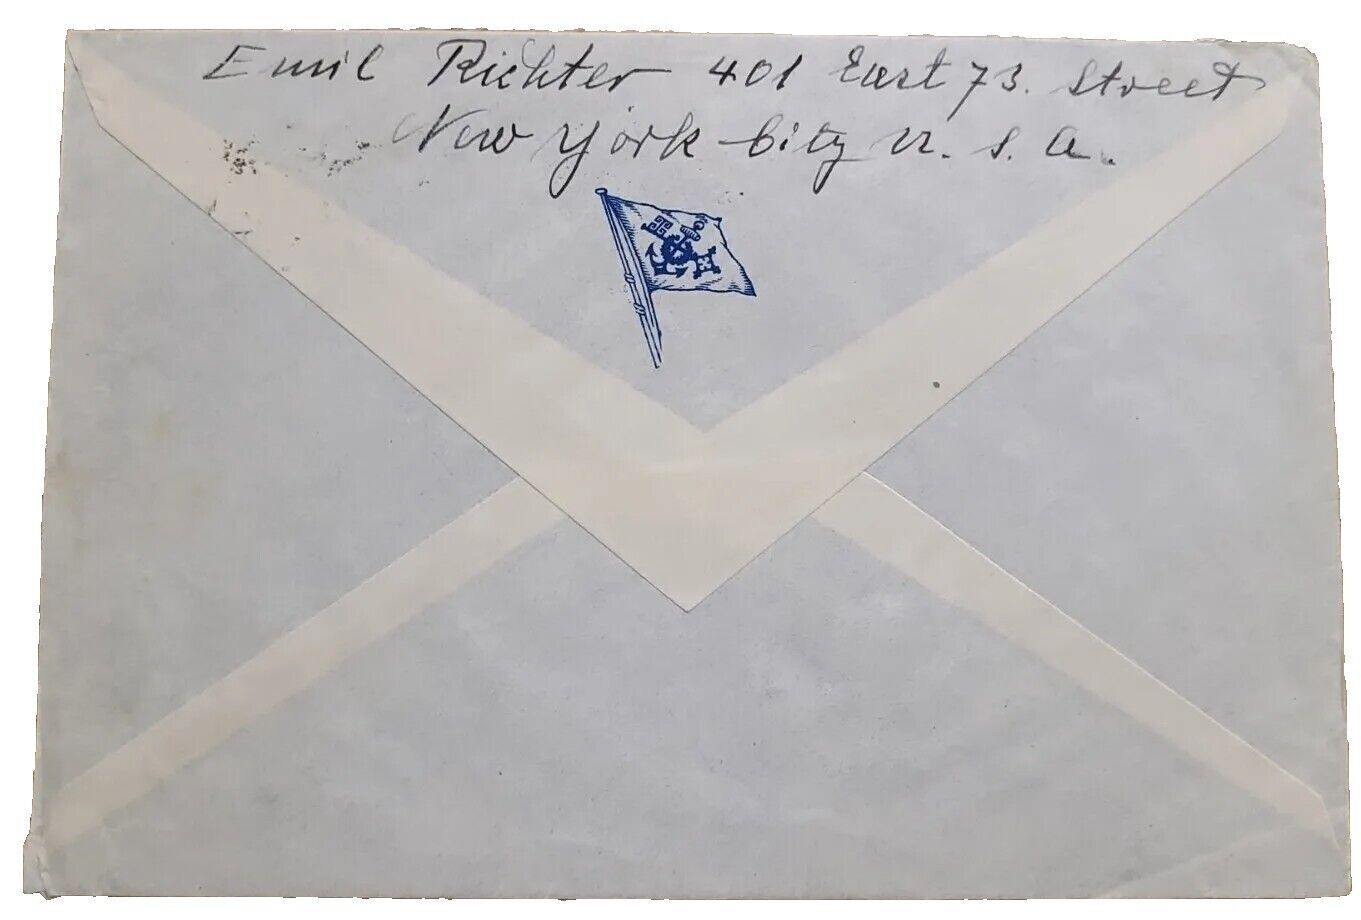 Emil Richter 401 East 73. Street
New York City U. S. A.